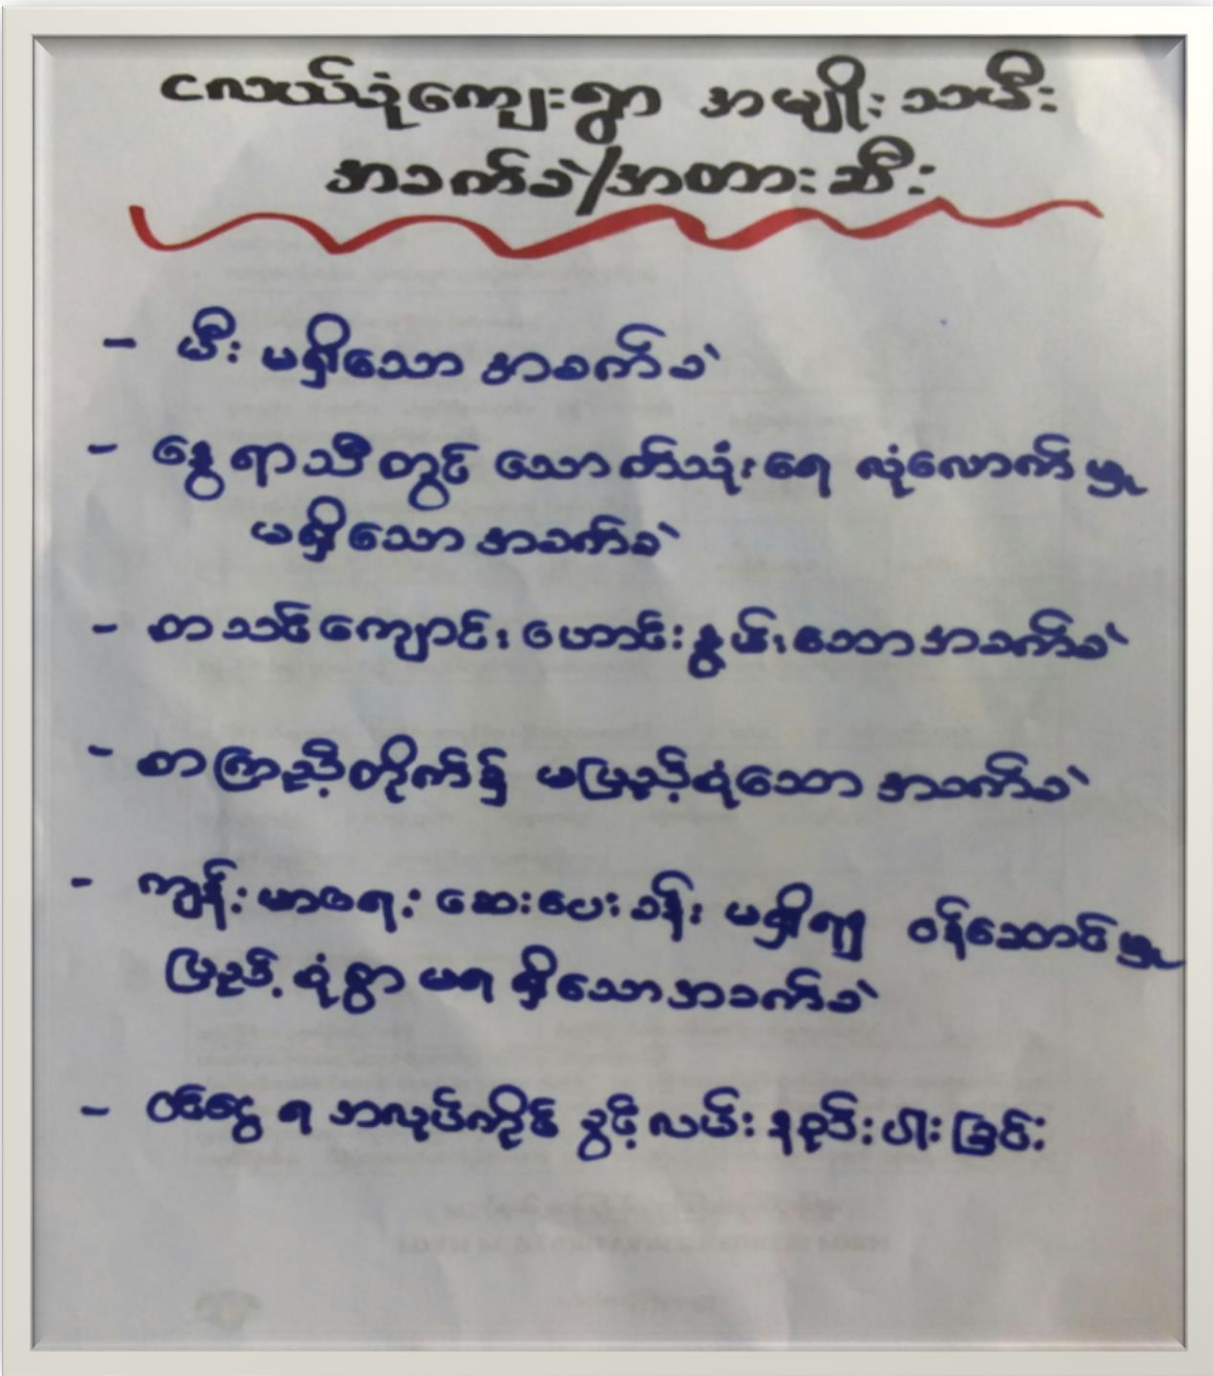 ငလယ်သုံကျေးရွာ အမျိုးသမီး
အခက်ခဲ/အတားဆီး
- မီး မရှိသော အခက်ခဲ
- နွေရာသီတွင် သောက်သုံးရေ လုံလောက်မှု
မရှိသော အခက်ခဲ
- စာသင်ကျောင်း ဟောင်းနွမ်းသော အခက်ခဲ
- စာကြည့်တိုက်၌ မပြည့်စုံသော အခက်ခဲ
- ကျန်းမာရေး ဆေးပေးခန်း မရှိ၍ ဝန်ဆောင်မှု
ပြည့်စုံစွာ မရရှိသော အခက်ခဲ
- ဝင်ငွေ ရ အလုပ်ကိုင် ခွင့်လမ်း နည်းပါးခြင်း